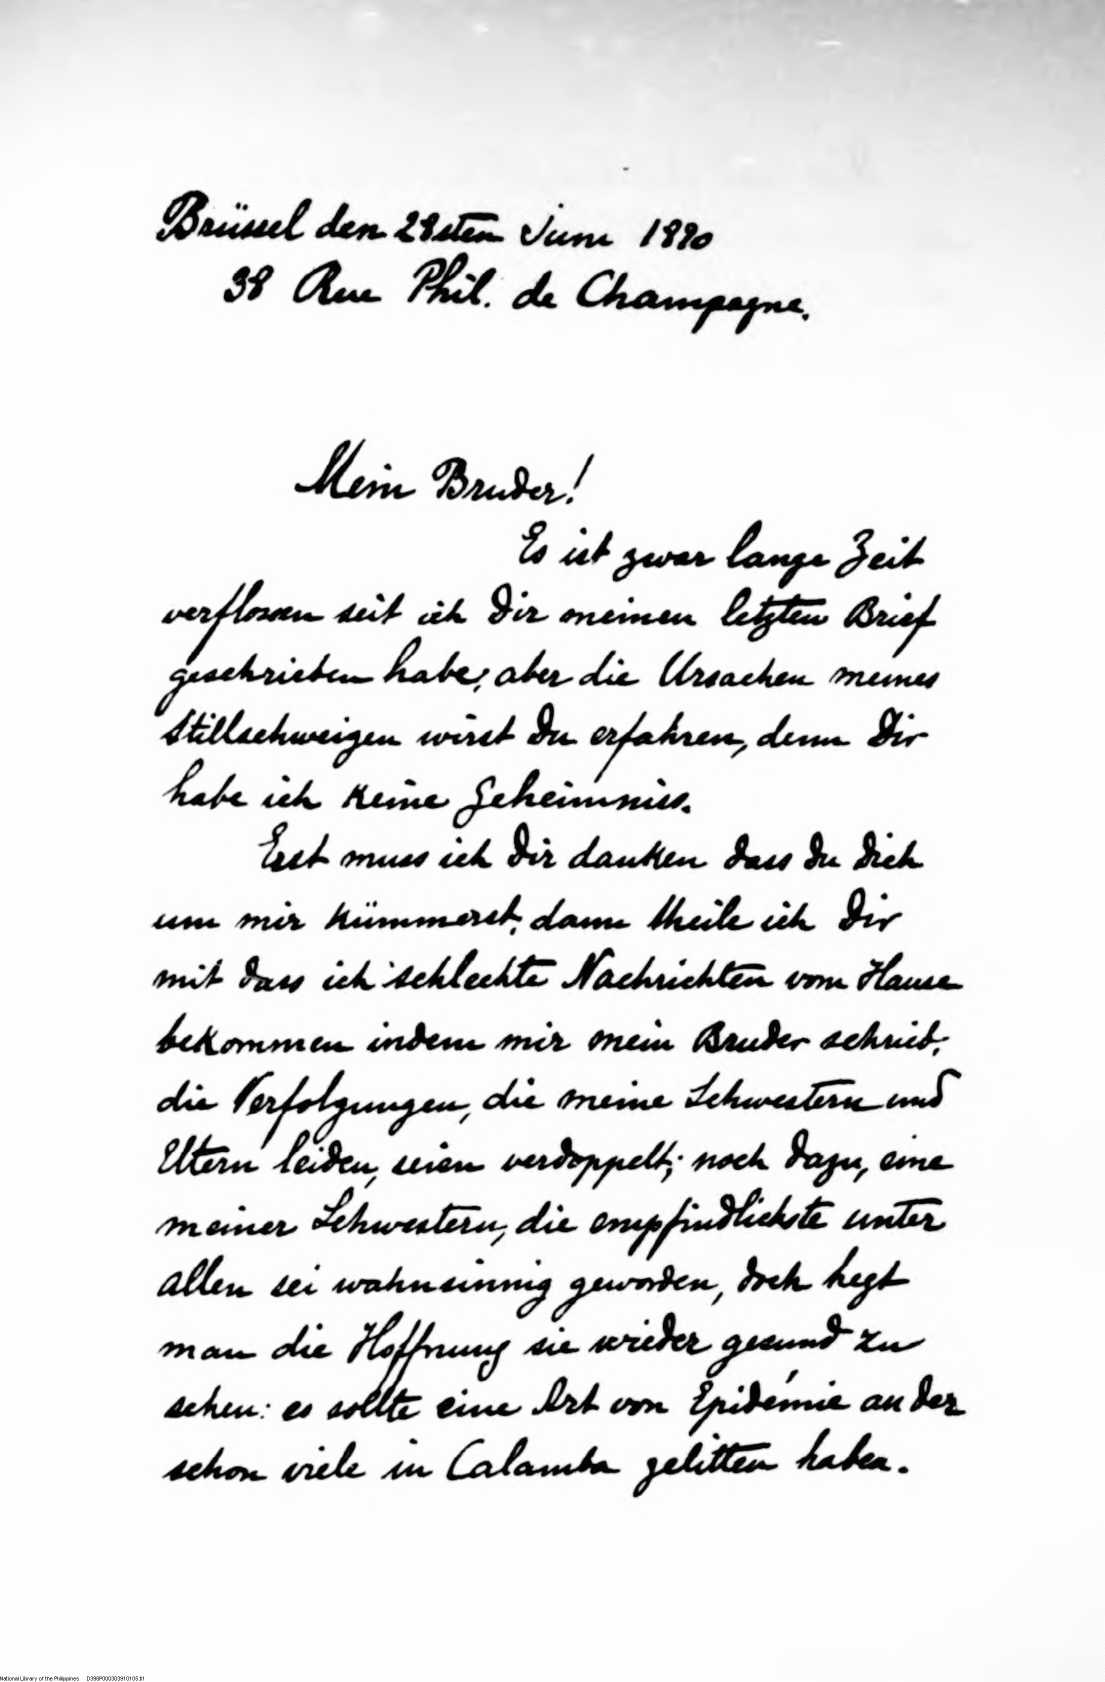 Brüssel den 28sten Juni 1890
38 Rue Phil. de Champagne.
Mein Bruder!
Es ist zwar lange Zeit
verflossen seit ich Dir meinen letzten Brief
geschrieben habe; aber die Ursachen meines
Stillschweigen wirst Du erfahren, denn Dir
habe ich keine Geheimniss.
Erst muss ich Dir danken dass Du Dich
um mir kümmerst; dann theile ich Dir
mit dass ich schlechte Nachrichten vom Hause
bekommen indem mir mein Bruder schrieb;
die Verfolgungen, die meine Schwestern und
Eltern leiden, seien verdoppelt; noch dazu, eine
meiner Schwestern, die empfindlichste unter
allen sei wahnsinnig geworden, doch hegt
man die Hoffnung sie wieder gesund zu
sehen: es sollte eine Art von Epidémie an der
schon viele in Calamba gelitten haben.
National Library of the Philippines D396P000303910105.tif